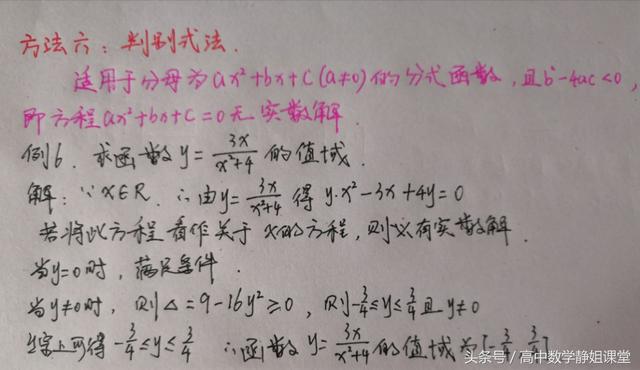 方法六：判别式法.
适用于分母为ax²+bx+c(a≠0)的分式函数,且b²-4ac<0,
即方程ax²+bx+c=0无实数解.
例6. 求函数y=3x/(x²+4)的值域.
解：∵x∈R. ∴由y=3x/(x²+4)得y·x²-3x+4y=0
若将此方程看作关于x的方程,则必有实数解.
当y=0时,满足条件.
当y≠0时,则△=9-16y²≥0,则-3/4≤y≤3/4且y≠0
综上可得-3/4≤y≤3/4 ∴函数y=3x/(x²+4)的值域为[-3/4,3/4]
头条号／高中数学静姐课堂